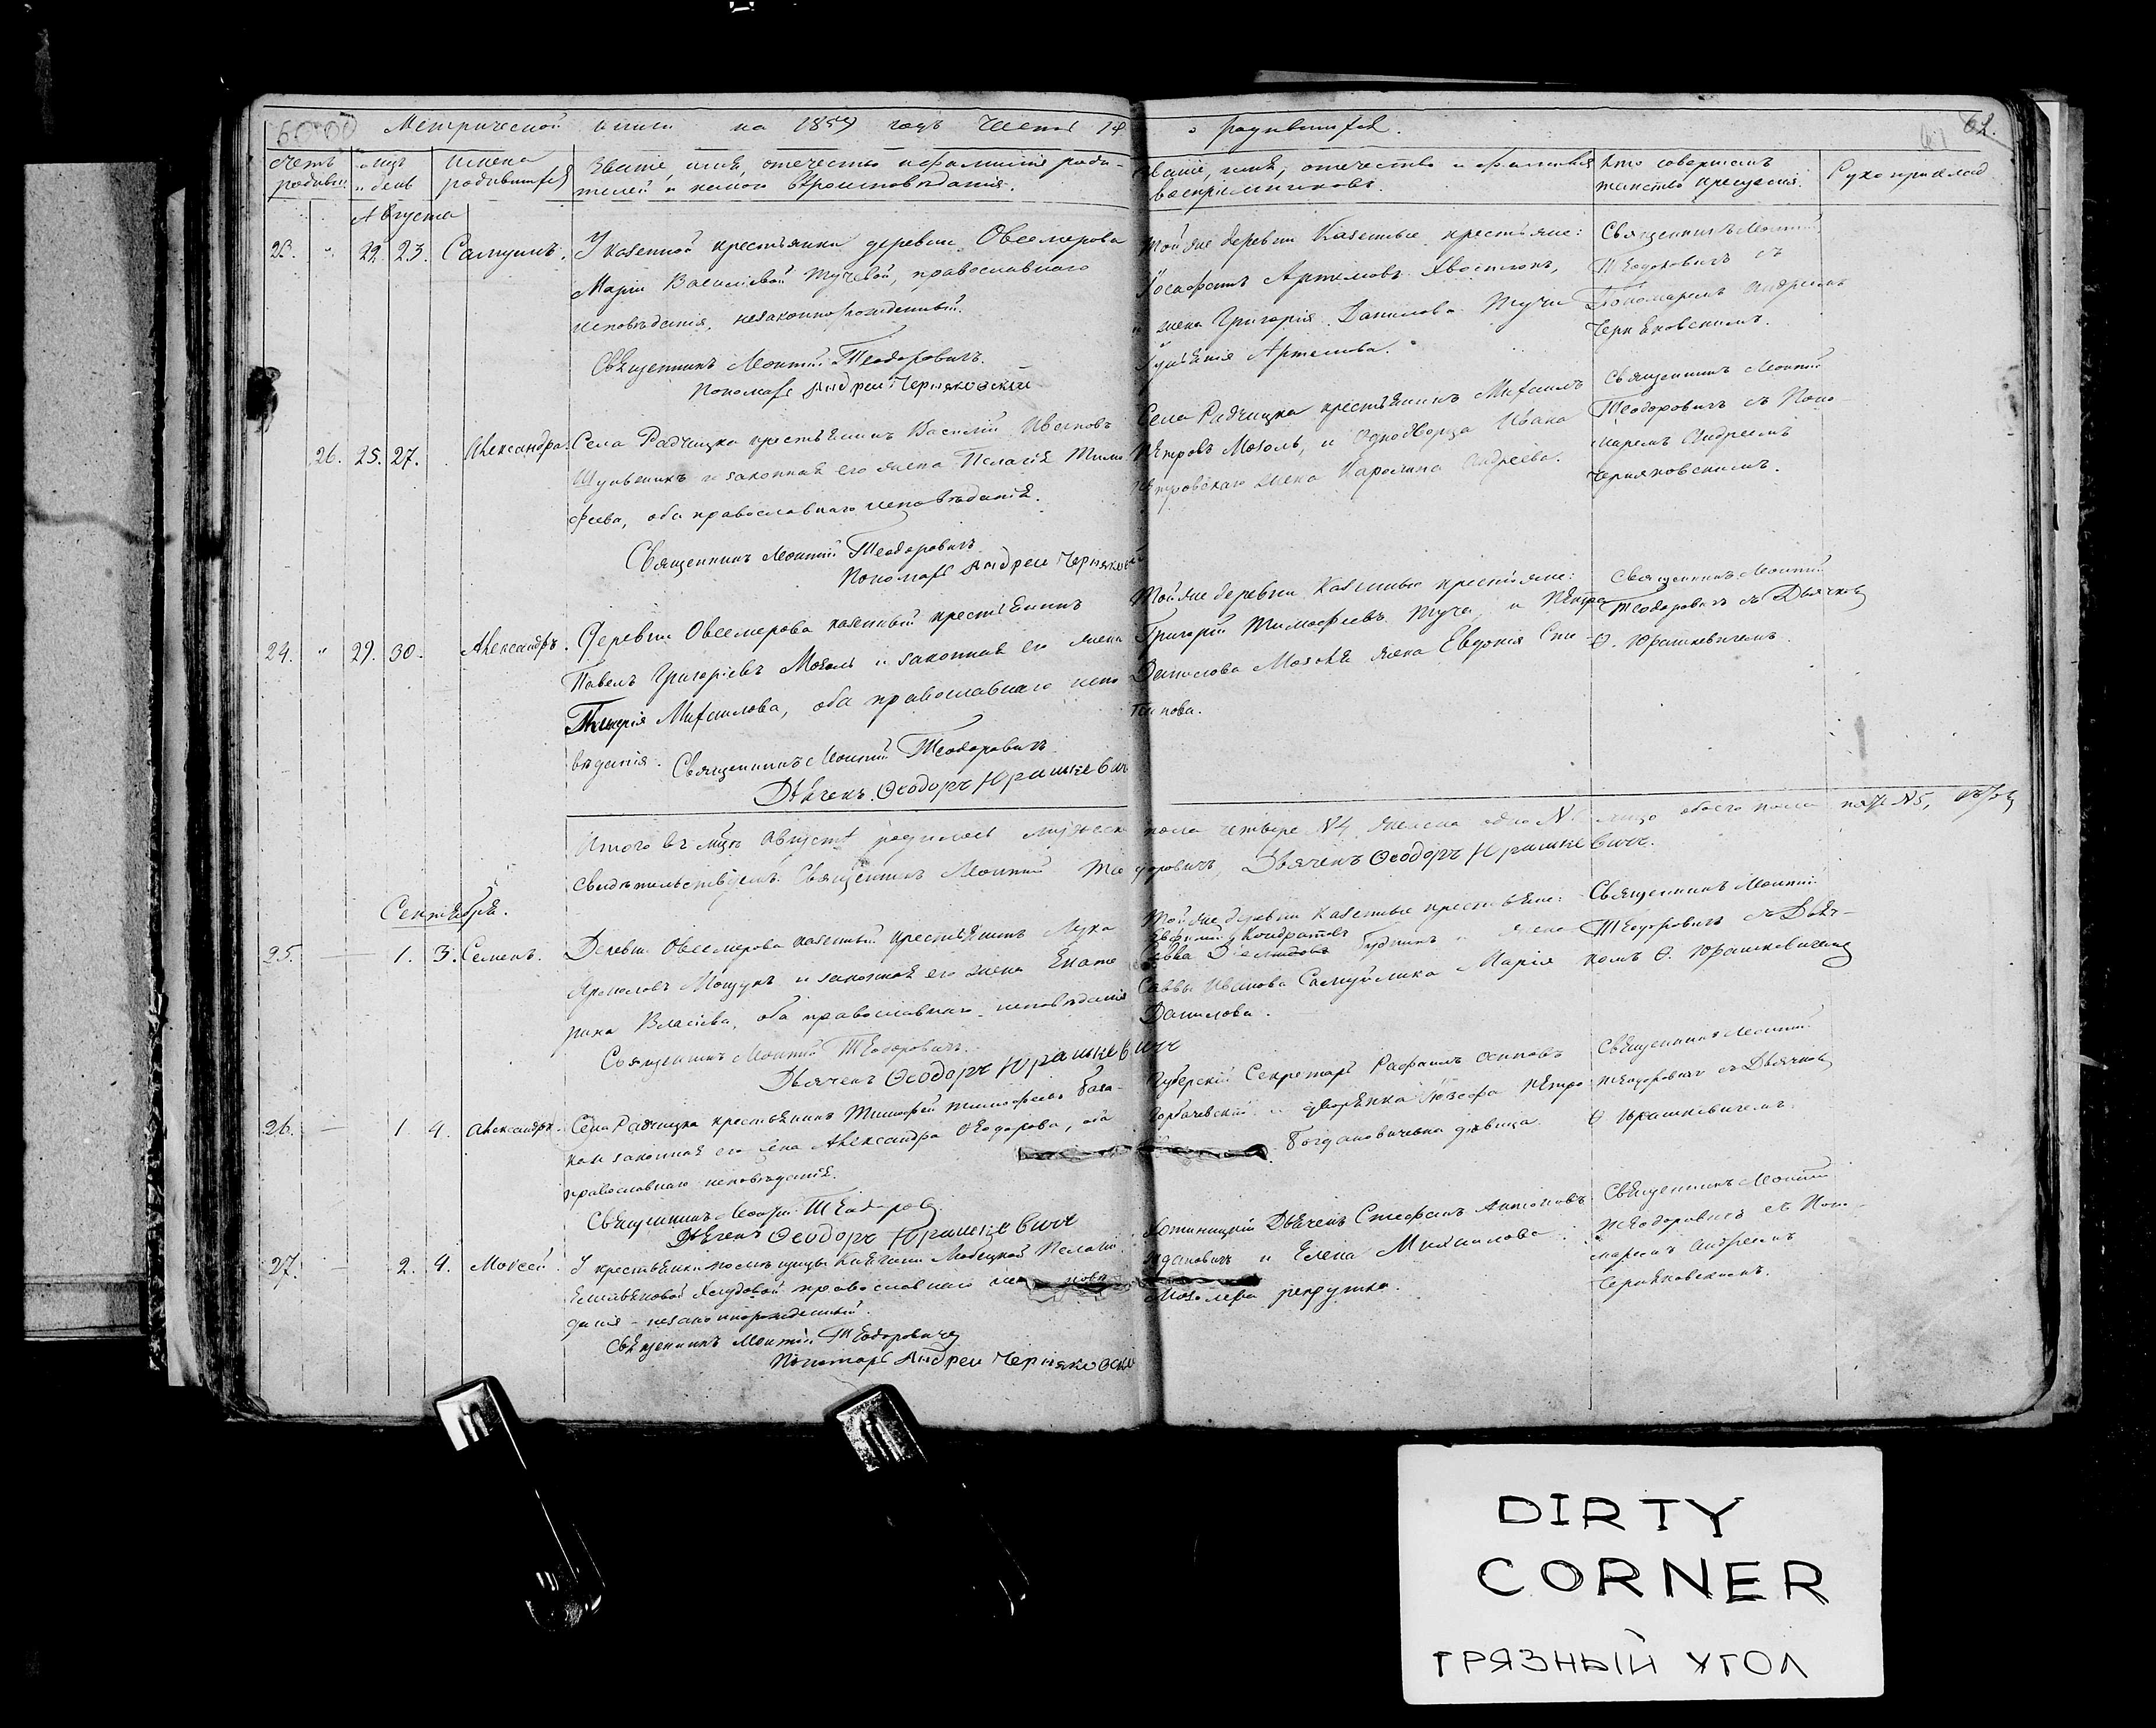 Метрической книги на 1859 годъ Часть 1я о родившихся. 62.
Счетъ родивш. м-цъ и день Имена родившихся Званіе, имя, отечество и фамилія роди-телей и какого вѣроисповѣданія. Званіе, имя, отечество и фамилія воспріемниковъ. Кто совершалъ таинство крещенія. Рукоприклад.
Августа
23. " 22. 23. Самуилъ.
У казенной крестьянки деревни Овсемерова
Маріи Васильевой Тучевой, православнаго
исповѣданія, незаконнорожденный.
Священникъ Леонтій Теодоровичъ.
Пономарь Андрей Черняковскій
Той же деревни Казенные крестьяне:
Іосафатъ Артемовъ
и жена Григорія Данилова Тучи
Артемова.
Священникъ Леонтій
Теодоровичъ съ
Пономаремъ Андреемъ
Черняковскимъ.
26. 25. 27. Александра.
Села Радчицка крестьянинъ Василій Ивановъ
и законная его жена Пелагія Тимо
феева, оба православнаго исповѣданія.
Священникъ Леонтій Теодоровичъ
Пономарь Андрей Черняковскій
Села Радчицка крестьянинъ Михаилъ
Петровъ Мозоль, и Однодворца Ивана
Петровскаго жена Каролина Андреева.
Священникъ Леонтій
Теодоровичъ съ Поно-
маремъ Андреемъ
Черняковскимъ.
24. " 29. 30. Александръ.
Деревни Овсемерова казенный крестьянинъ
Павелъ Григорьевъ Мозоль и законная его жена
Михаилова, оба православнаго испо
вѣданія. Священникъ Леонтій Теодоровичъ
Дьячекъ Ѳеодоръ Юрашкевичъ
Той же деревни Казенные крестьяне:
Григорій Тимофеевъ Туча, и Петра
Данилова Мозоля жена Евдокія Сте-
панова.
Священникъ Леонтій
Теодоровичъ съ Дьячком
Ѳ. Юрашкевичемъ.
Итого въ м-цѣ Августѣ родилось мужеска пола четыре №4, женска одно № обоего пола пять №5,
свидѣтельствуемъ. Священникъ Леонтій Теодоровичъ, Дьячекъ Ѳеодоръ Юрашкевичъ.
Сентября.
25. — 1. 3. Семенъ.
Деревни Овсемерова казенный крестьянинъ Лука
и законная его жена Екате
рина Власіева, оба православнаго исповѣданія
Священникъ Леонтій Теодоровичъ.
Дьячекъ Ѳеодоръ Юрашкевичъ
Той же деревни Казенные крестьяне:
Кондратовъ
и жена
Саввы Иванова Самуйлика Марія
Данилова.
Священникъ Леонтій
Теодоровичъ съ Дьяч-
комъ Ѳ. Юрашкевичемъ
26. — 1. 4. Александръ.
Села Радчицка крестьянинъ Тимофей Тимофеевъ
и законная его жена Александра Ѳеодорова, оба
православнаго исповѣданія.
Священникъ Леонтій Теодоров
Дьячекъ Ѳеодоръ Юрашкевичъ
Губерскій Секретарь Рафаилъ Осиповъ
Горбачевскій и дворянка Іозефа Петро
Богдановичевна дѣвица.
Священникъ Леонтій
Теодоровичъ съ Дьячком
Ѳ Юрашкевичемъ.
27. — 2. 4. Моисей.
У крестьянки помѣщицы Княгини Любецкой Пелагіи
православнаго испо
данія - незаконнорожденный.
Священникъ Леонтій Теодоровичъ
Пономарь Андрей Черняковскій
Дьячекъ Стефанъ Антоновъ
и Елена Михаилова
рекрутка.
Священникъ Леонтій
Теодоровичъ съ Поно-
маремъ Андреемъ
Черняковскимъ.
DIRTY
CORNER
ГРЯЗНЫЙ УГОЛ